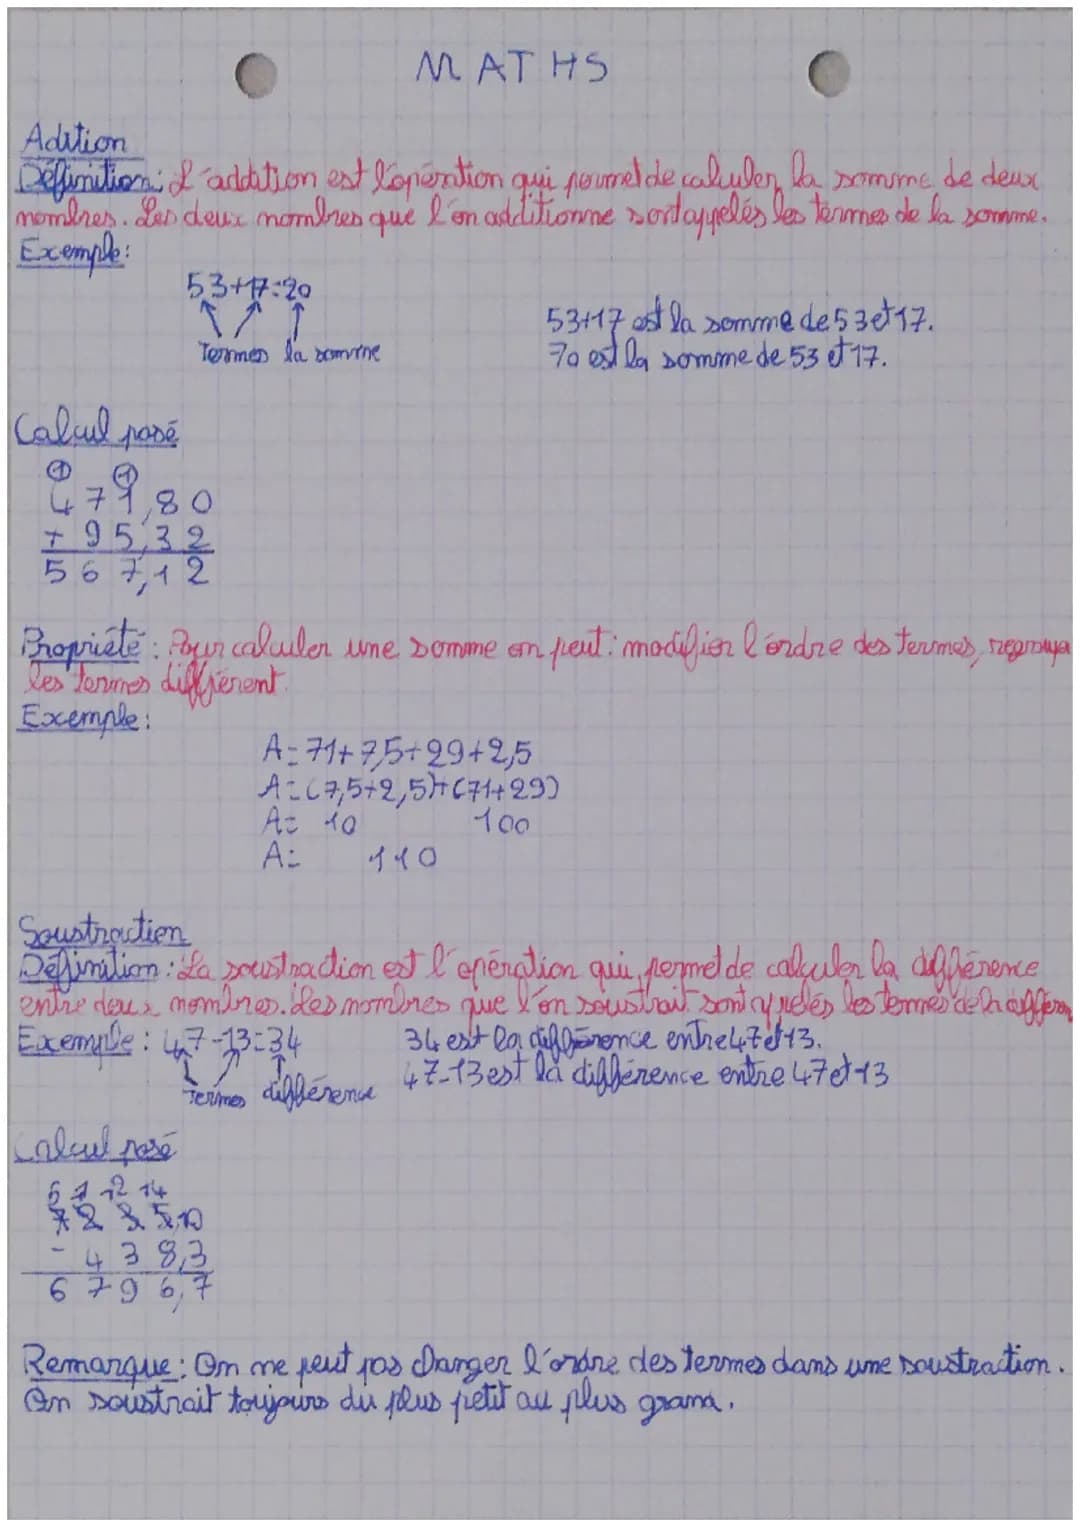 MATHS
Adition
Définition: L'addition est l'opération qui permet de calculer la somme de deux
nombres. Les deux nombres que l'on additionne sont appelés les termes de la somme.
Exemple:
53+17=20
Termes la somme
53+17 est la somme de 53 et 17.
70 est la somme de 53 et 17.
Calcul posé
1 1
471,80
+ 95,32
567,12
Propriété : Pour calculer une somme on peut : modifier l'ordre des termes, regroupe
les termes différent.
Exemple:
A=71+7,5+29+2,5
A=(7,5+2,5)+(71+29)
A= 10 100
A= 110
Soustraction
Définition : La soustraction est l'opération qui permet de calculer la différence
entre deux nombres. Les nombres que l'on soustrait sont appelés les termes de la différen
Exemple : 47-13=34
Termes différence
34 est la différence entre 47 et 13.
47-13 est la différence entre 47 et 13
Calcul posé
6 1 12 14
7 2 3 5,10
- 4 3 8,3
6 7 9 6,7
Remarque : On ne peut pas changer l'ordre des termes dans une soustraction.
On soustrait toujours du plus petit au plus grand.